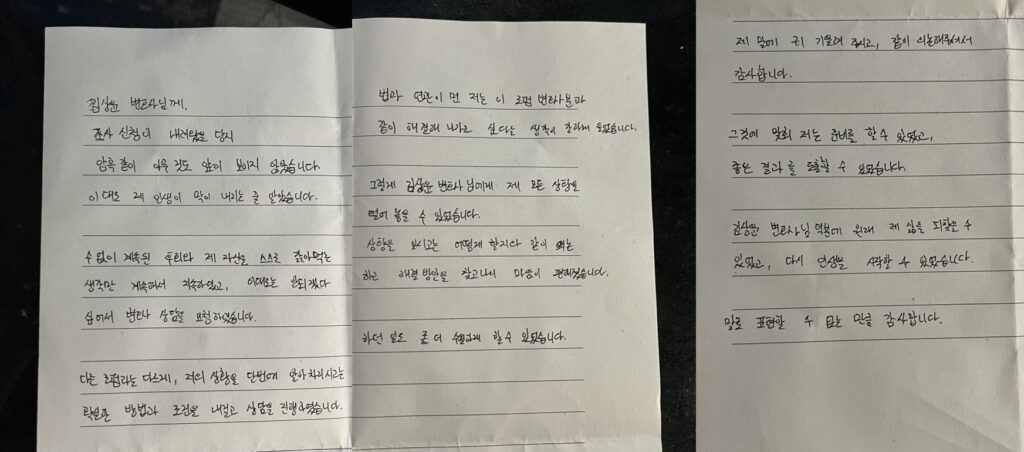 김상윤 변호사님께,
조사 신청이 내려왔을 당시
암흑 같이 아무 것도 앞이 보이지 않았습니다.
이대로 제 인생이 막이 내리는 줄 알았습니다.
수 없이 계속된 후회와 제 자신을 스스로 갉아먹는
생각만 계속해서 지속하였고, 이대로는 안되겠다
싶어서 변호사 상담을 요청하였습니다.
다른 로펌과는 다르게, 저의 상황을 단번에 알아차리시고는
확실한 방법과 조건을 내걸고 상담을 진행하였습니다.
법과 연관이 먼 저는 이 로펌 변호사분과
같이 해결해 나가고 싶다는 생각이 강하게 들었습니다.
그렇게 김상윤 변호사님에게 제 모든 상황을
털어 놓을 수 있었습니다.
상황을 보시고는 어떻게 할지와 같이
하고 해결 방안을 찾고나니 마음이 편해졌습니다.
하던 일도 좀 더 수월하게 할 수 있었습니다.
제 말에 귀 기울여 주시고, 같이 의논해주셔서
감사합니다.
그것에 맞춰 저는 준비를 할 수 있었고,
좋은 결과를 도출할 수 있었습니다.
김상윤 변호사님 덕분에 원래 제 삶을 되찾을 수
있었고, 다시 인생을 시작할 수 있었습니다.
말로 표현할 수 없는 만큼 감사합니다.